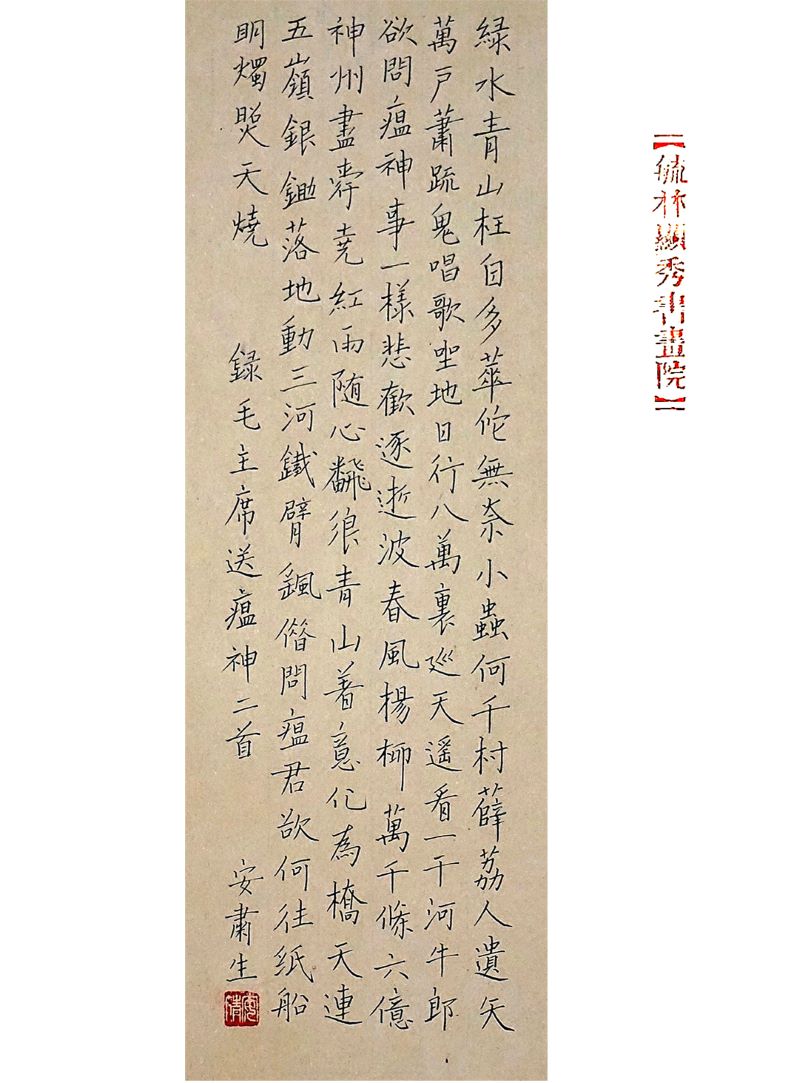 【毓林顯秀書畫院】
緑水青山枉自多華佗無奈小蟲何千村薜荔人遺矢
萬戶蕭疏鬼唱歌坐地日行八萬裏廵天遥看一千河牛郎
欲問瘟神事一樣悲歡逐逝波春風楊柳萬千條六億
神州盡舜堯紅雨随心飜浪青山着意化為橋天連
五嶺銀鋤落地動三河鐵臂颻僭問瘟君欲何往紙船
明燭照天燒 録毛主席送瘟神二首 安肅生